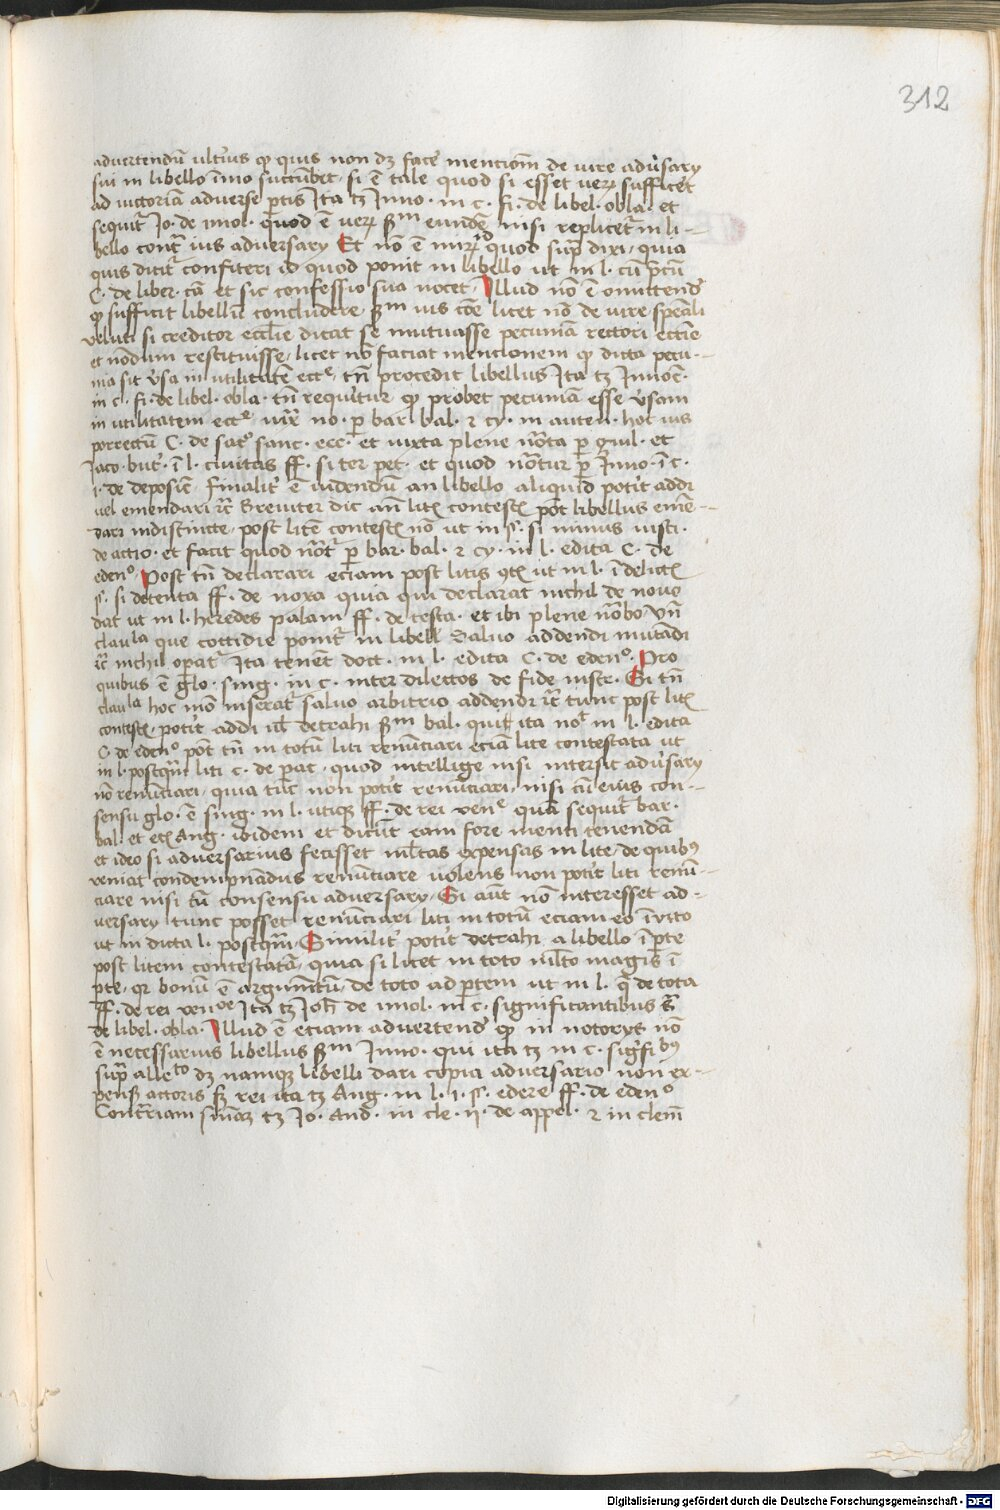 312
advertendū ultīus ꝙ quis non dꝫ facē mencionē de iure adūsarÿ
sui in libello īmo succūbet, si ē tale quod si esset verꝫ sufficēt
ad victoriam adverse ꝑtis Ita tꝫ Inno · in c · fi · de libel · obla · et
sequit᷑ Io · de imol · quod ē verꝫ scdm eundē nisi replicet᷑ in li-
bello cont᷑ ius adversarÿ Et nō ē mirꝫ quod sup᷑ dixi, quia
quis dicit᷑ confiteri id quod ponit in libello ut in l · cū p̄cū
C · de liber · cā et sic confessio sua nocet, Illud nō ē omittend᷑
ꝙ sufficit libellū concludere scdm ius cōe licet nō de iure spēali
veluti si creditor ecclīe dicat se mutuasse pecuniā rectori ecclīe
et nōdum restituisse, licet nō faciat mencionem ꝙ dicta pecu-
nia sit v̄sa in utilitatē ecce, tn̄ procedit libellus Ita tꝫ Innoc̄ ·
in c · fi · de libel · obla · tn̄ requirit᷑ ꝙ probet pecuniā esse v̄sam
in utilitatem ecce · no · ꝑ bar · bal · ⁊ cy · in auten · hoc ius
porrectū C · de sac° sanc · ecc · et iuxta plene nōta ꝑ guil · et
Iaco · but᷑ · ī l · civitas ff · si cer pet · et quod nōtur ꝑ Inno · ī c ·
1 · de deposic̄ Finalit᷑ ē videndū an libello aliquid potīt addi
vel emendari ⁊c̄ Breviter dic an̄ litꝫ contestꝫ pōt libellus emē-
dari indistincte, post litē contestꝫ nō ut in §· si minus insti ·
de actio · et facit quod nōt᷑ ꝑ bar · bal · ⁊ cy · in l · edita C · de
eden° · Post tn̄ declarari eciam post litis ꝯtꝫ ut in l · ī delictꝫ
§· si detenta ff · de noxa quia qui declarat nichil de novo
dat ut in l · heredes palam ff · de testa · et ibi plene nōbo, Vn̄
claula que cottidie ponit᷑ in libell Salvo addendi mutādi
⁊c̄ nichil operat᷑ Ita tenēt doct · in l · edita C · de eden° · Pro
quibus ē glo · sing · in c · inter dilectos de fide instr · Si tn̄
claula hoc mō inserat᷑ salvo arbitrio addendi ⁊c̄ tunc post litꝫ
contestꝫ, potīt addi vl̄ detrahi scdm bal · qui ita not in l · edita
C · de eden° pōt tn̄ in totū liti renūciari eciā lite contestata ut
in l · postqm̄ liti c · de pact · quod intellige nisi intersit adūsarÿ
nō renūciari, quia tūc non potīt renūciari, nisi cū eius con-
sensu glo · ē sing · in l · utiqꝫ ff · de rei vene quā sequit᷑ bar ·
bal · et ecꝫ Ang · ibidem et dicūt eam fore menti tenendā
et ideo si adversarius fecisset ml̄tas expensas in lite, de quibꝰ
veniat condempnādus renūciare volens non potīt liti renū-
ciare nisi cū consensu adversarÿ, Si aūt nō interesset ad-
versarÿ tunc posset renūciari liti in totū eciam eo īvito
ut in dicta l · postqm̄, Similit᷑ potīt detrahi a libello ī ꝑte
post litem contestatā, quia si licet in toto ml̄to magis ī
ꝑte, qr̄ bonū ē argumētū, de toto ad ꝑtem ut in l · q̄ de tota
ff · de rei venoe Ita tꝫ Ioh̄ de imol · in c · significantibus ex̄
de libel · obla · Illud ē eciam advertend᷑ ꝙ in notorÿs nō
ē necessarius libellus scdm Inno · qui ita tꝫ in c · sigfibꝰ
sup᷑ alleto dꝫ namqꝫ libelli dari copia adversario non ex-
pensꝫ actoris sꝫ rei ita tꝫ Ang · in l · 1 · §· edere ff · de eden°
Contrariam sn̄iaꝫ tꝫ Io · And · in cle · ij · de appel · ⁊ in clem̄
Digitalisierung gefördert durch die Deutsche Forschungsgemeinschaft - DFG